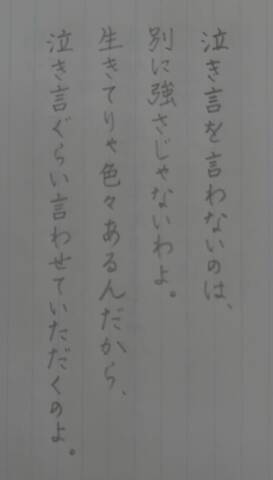 泣き言を言わないのは、
別に強さじゃないわよ。
生きてりゃ色々あるんだから、
泣き言ぐらい言わせていただくのよ。